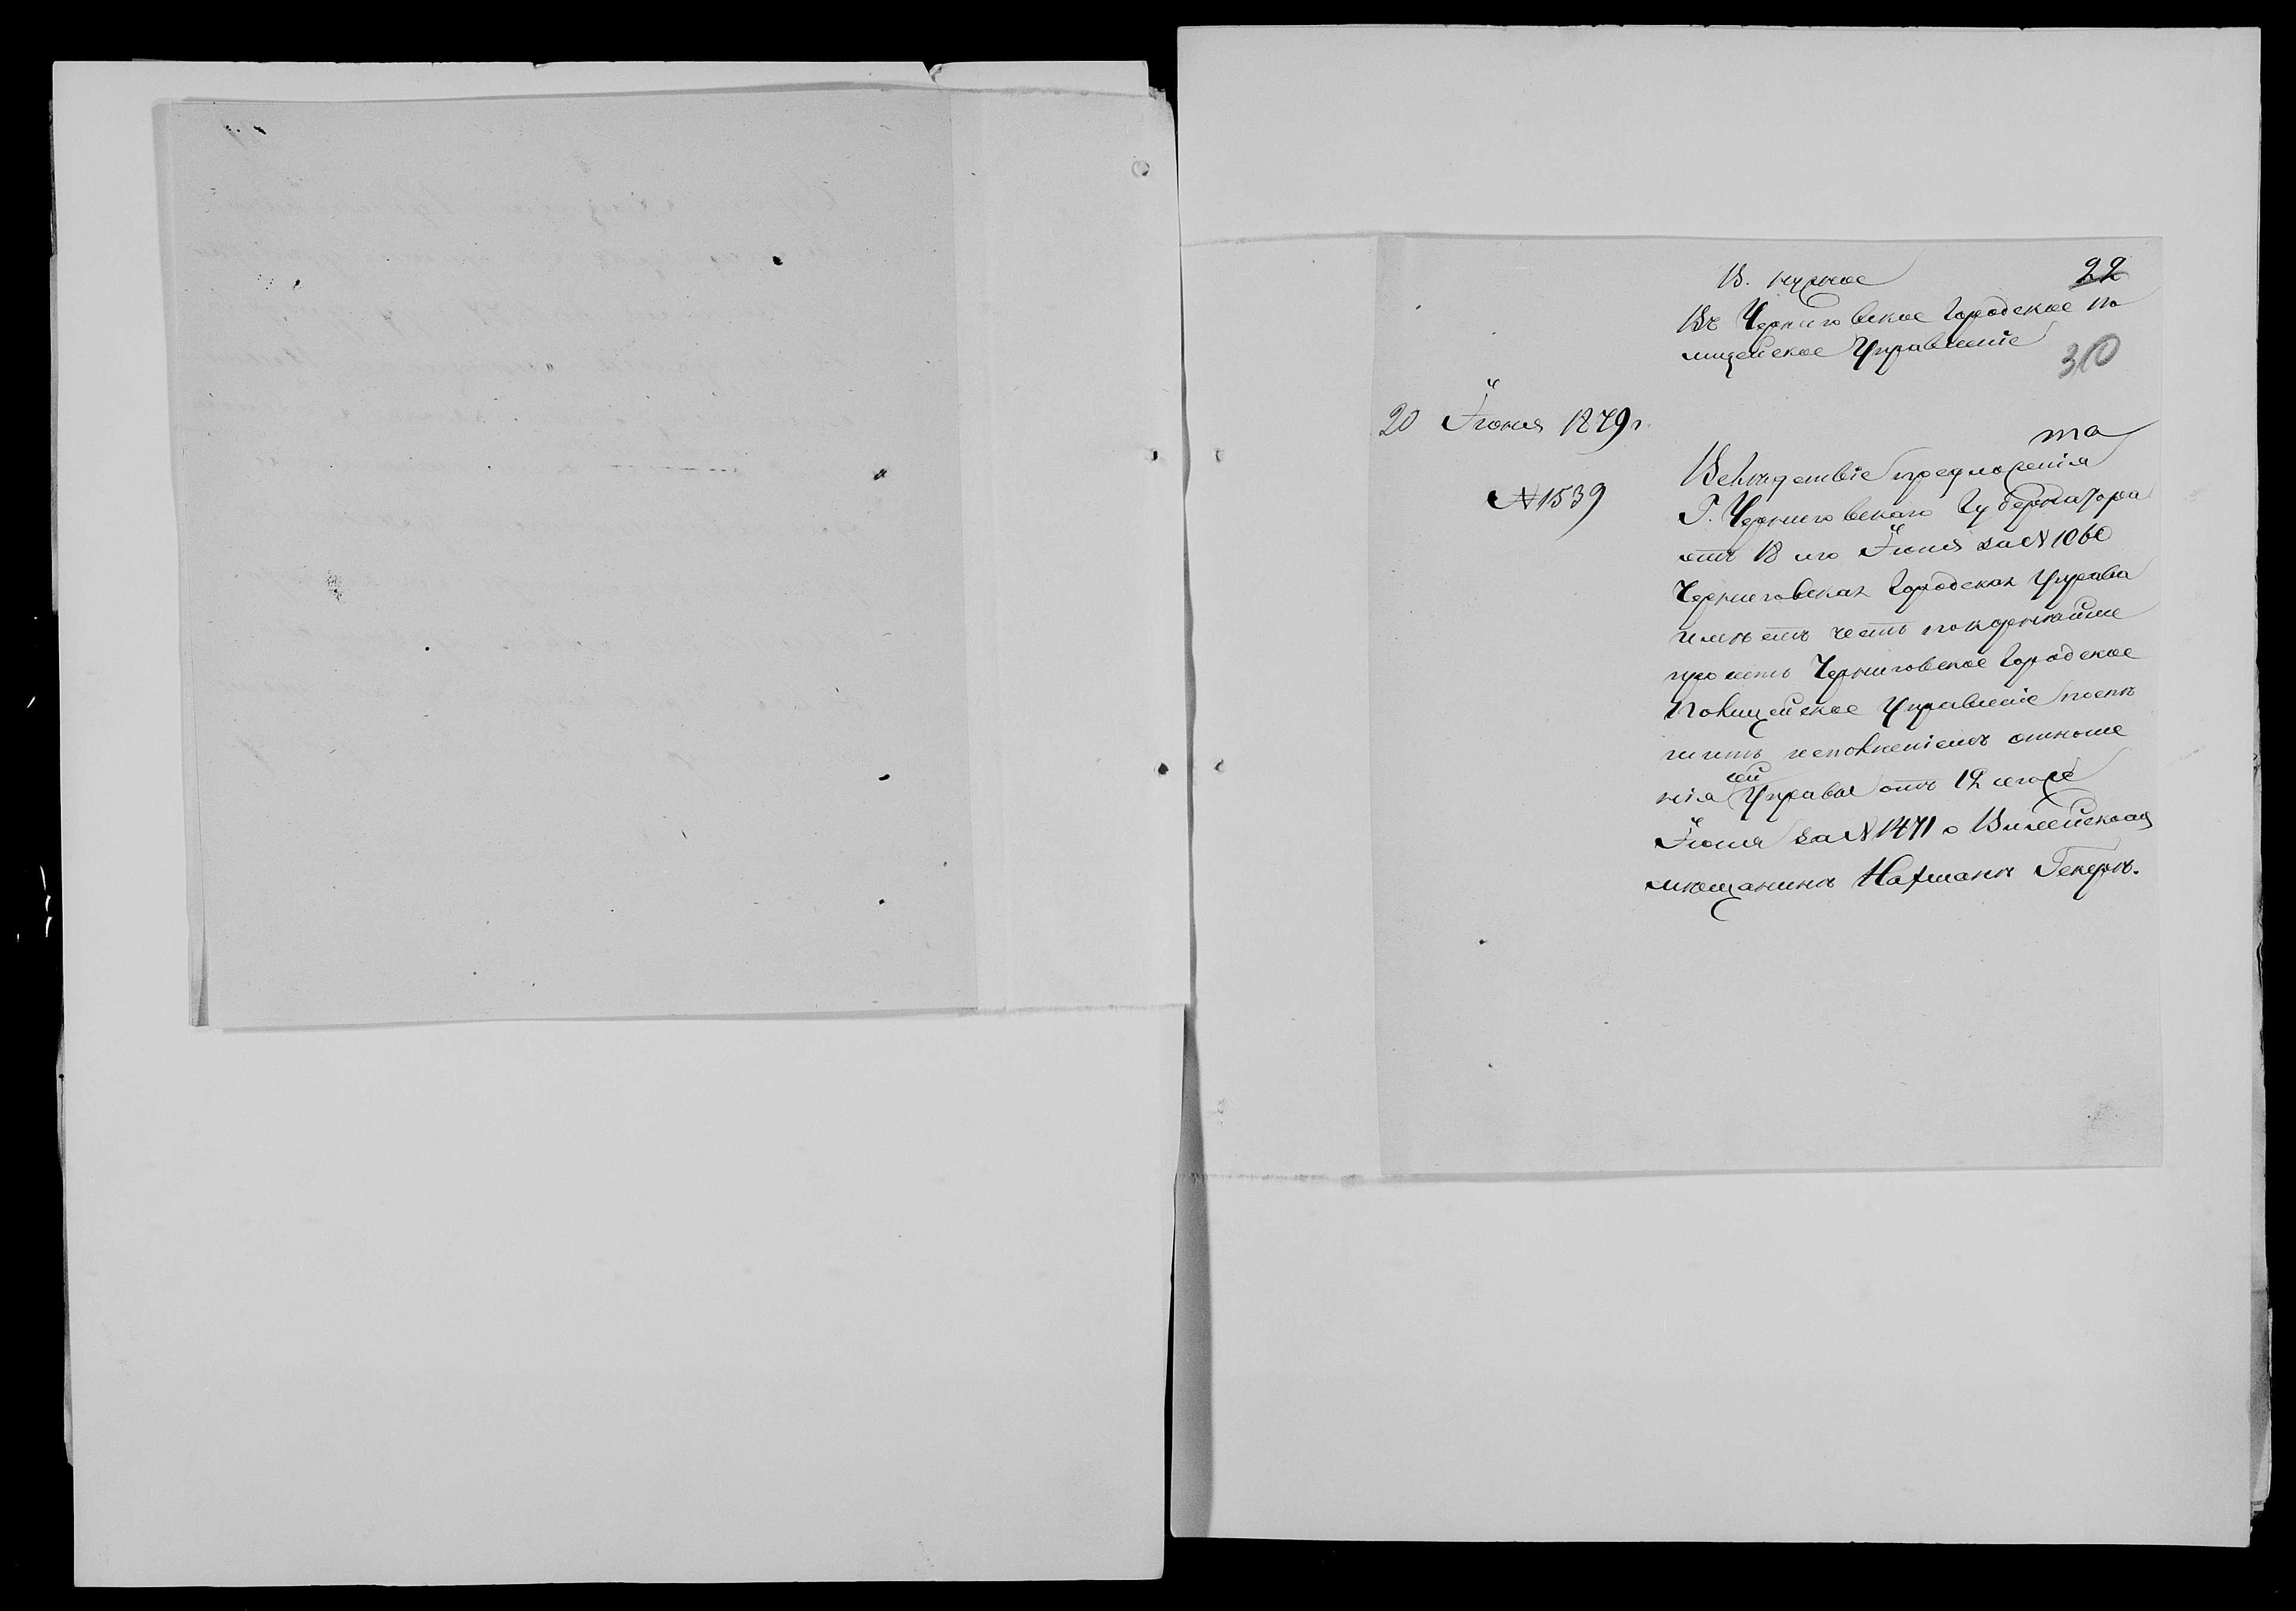 В. нужное
22
Въ Черниговское Городское по
лицейское Управленіе
30
20 Іюня 1879 г.
№ 1539
Вслѣдствіе предложенія
Г. Черниговскаго Губернатора
отъ 18 сего Іюня за № 1060
Черниговская Городская Управа
имѣетъ честь покорнѣйше
просить Черниговское Городское
Полицейское Управленіе поспѣ
шить исполненіемъ отноше
нія сей Управы отъ 12 сего же
Іюня за № 1471 о Вилейскомъ
мѣщанинѣ Нахманѣ Гекерѣ.